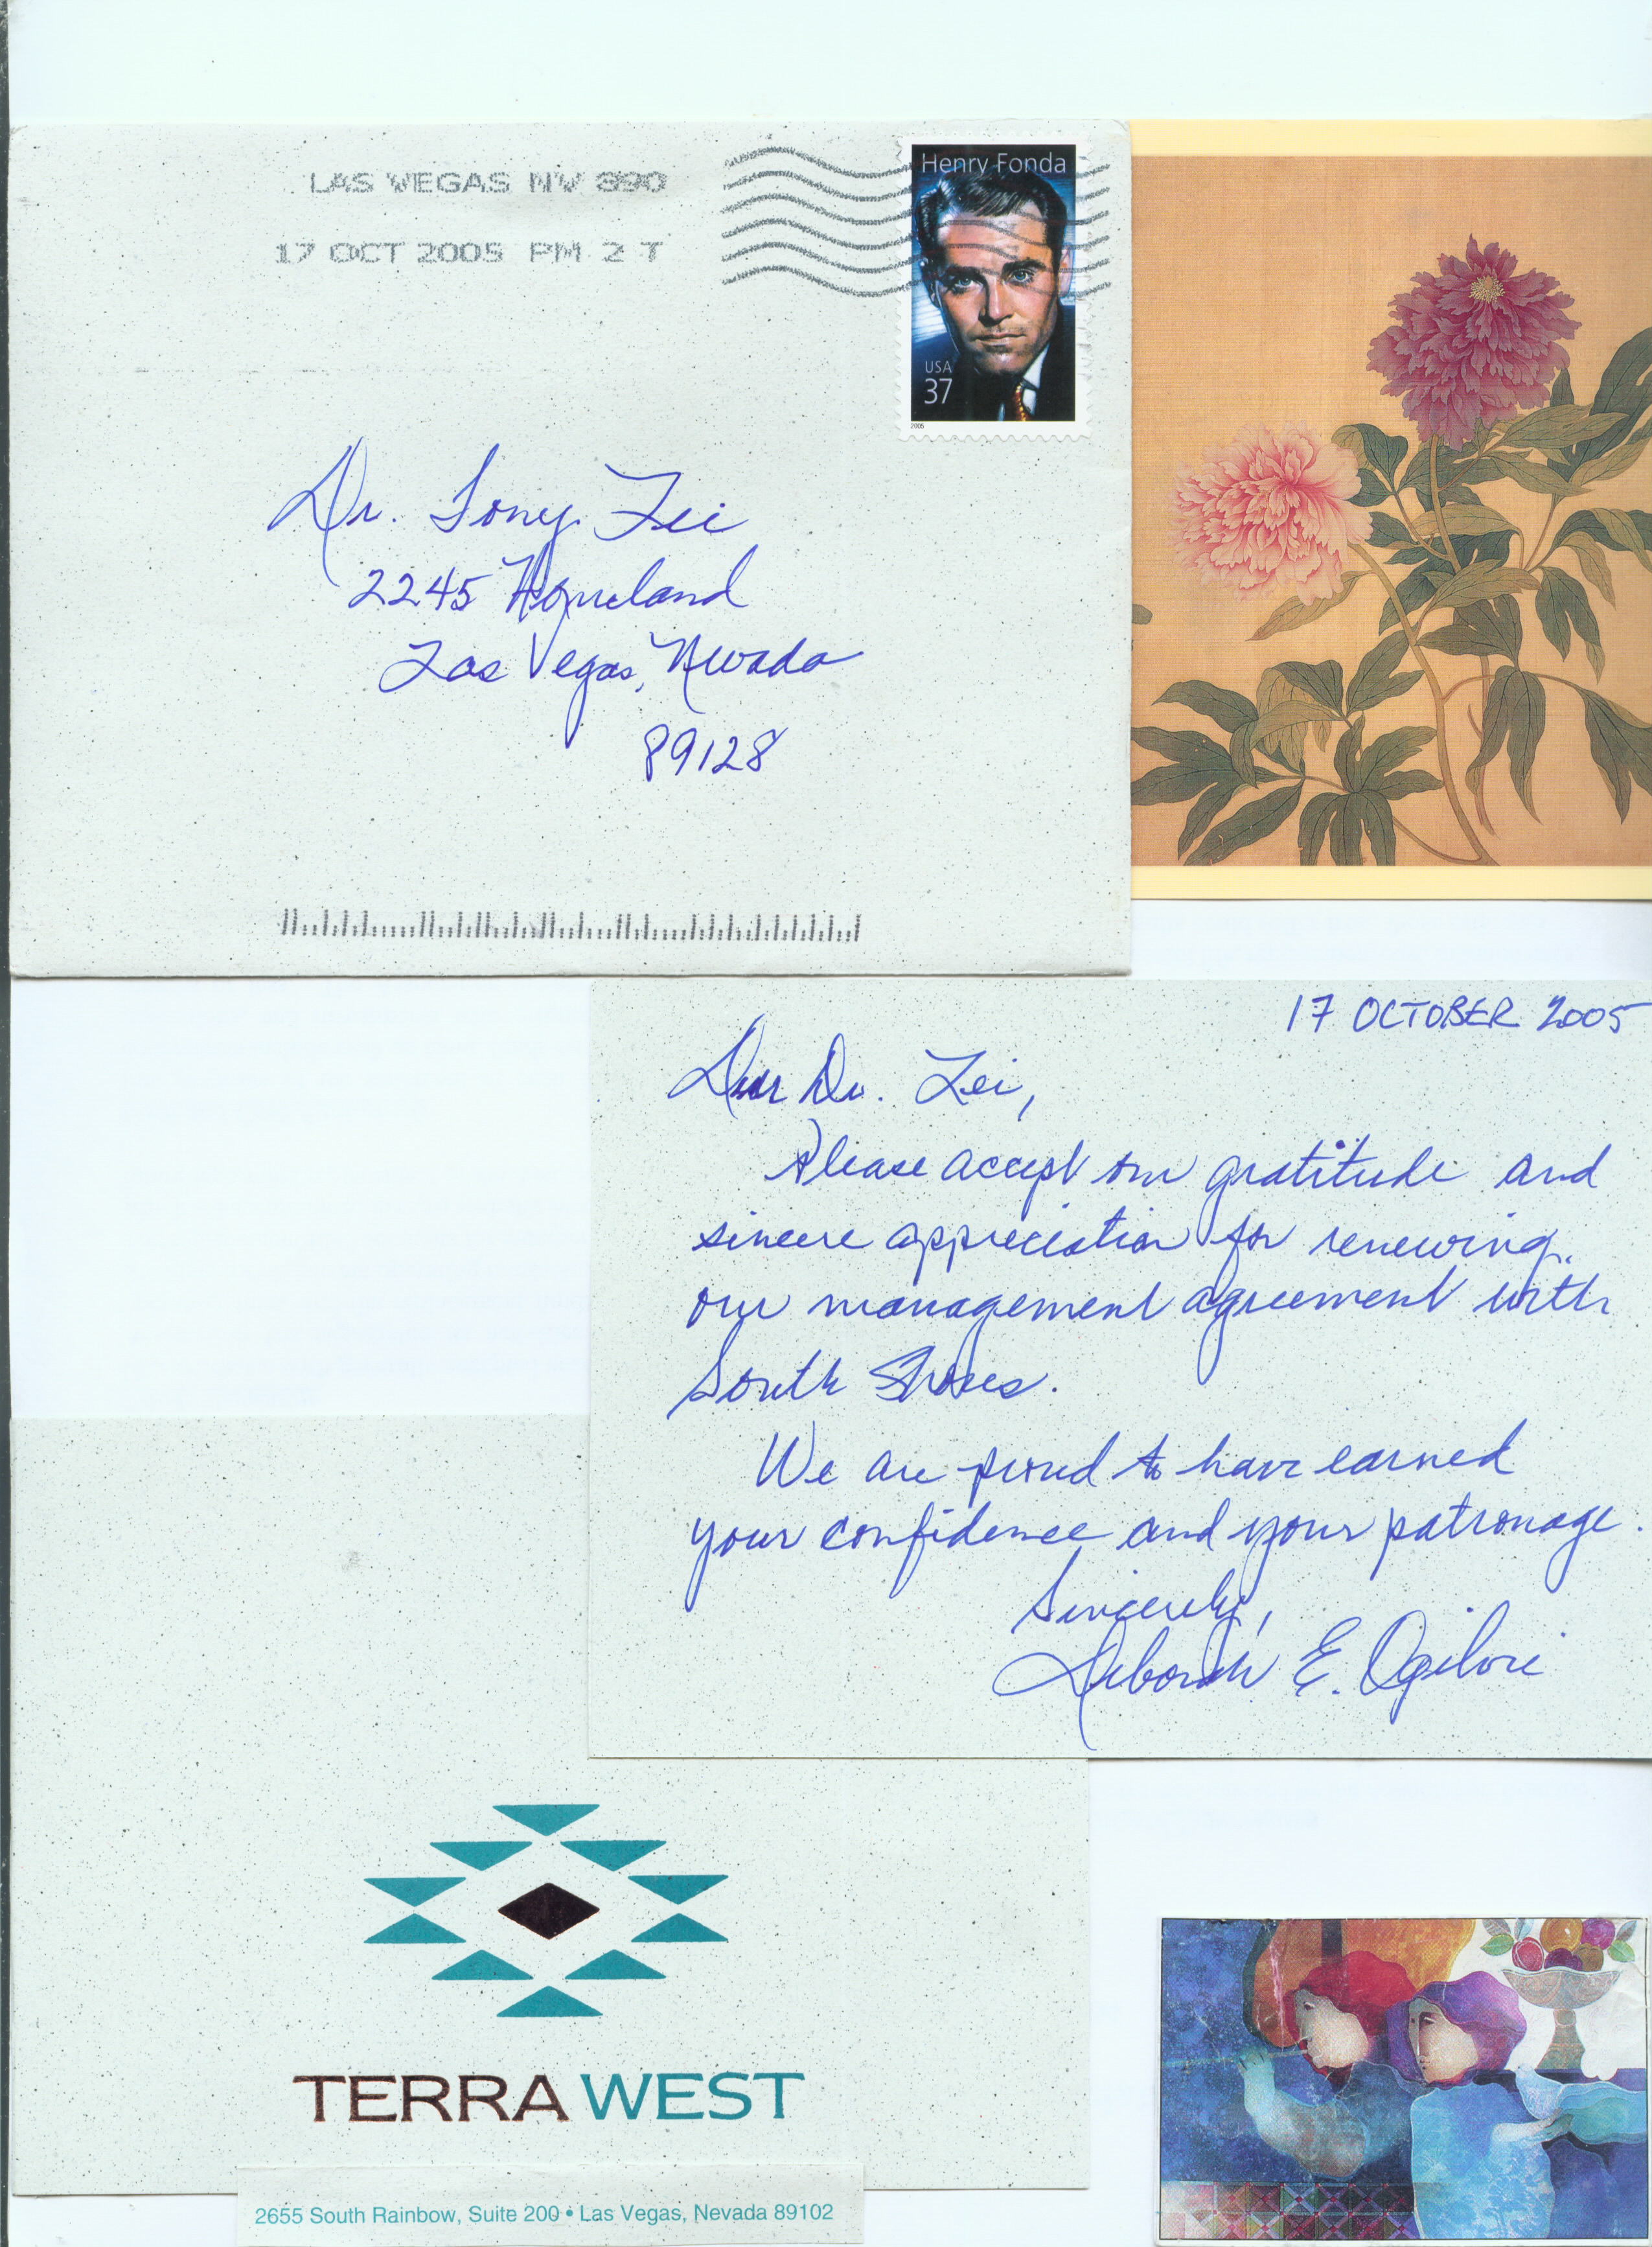 LAS VEGAS NV 890
17 OCT 2005 PM 2 T
Henry Fonda
USA
37
2005
Dr. Tony Lei
2245 Homeland
Las Vegas, Nevada
89128
17 OCTOBER 2005
Dear Dr. Lei,
Please accept our gratitude and
sincere appreciation for renewing
our management agreement with
South Shores.
We are proud to have earned
your confidence and your patronage.
Sincerely,
Deborah E. Ogilvie
TERRA WEST
2655 South Rainbow, Suite 200 • Las Vegas, Nevada 89102